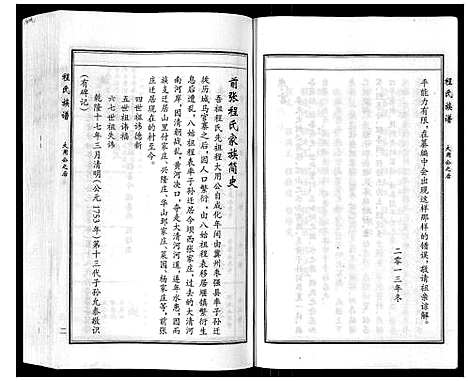 乎能力有限，在纂编中会出现这样那样的错误，敬请祖亲谅解。
二零一三年冬
前张程氏家族简史
吾祖程氏先祖程大用公自成化年间由冀州枣强县率子孙迁
徙历城马官寨之后，因人口繁衍，由八始祖程表移居堰镇繁衍生
息后遭乱，八始祖程表率子孙迁居今坝西张家庄，过去的大清河
南河岸，因清朝战乱，黄河决口，夺走大清河河道，连年水患，因而
又迁居山里付家庄、兴隆庄、华山邨家庄、菜园、杨家庄等，前张
庄迁居现在的村至今。
四世祖讳德新
五世祖讳福
六七世祖失讳
乾隆十七年三月清明(公元1753年)第十三代子孙允泰敬识
(有碑记)
程氏族谱
大用公之后
二
程氏族谱
大用公之后